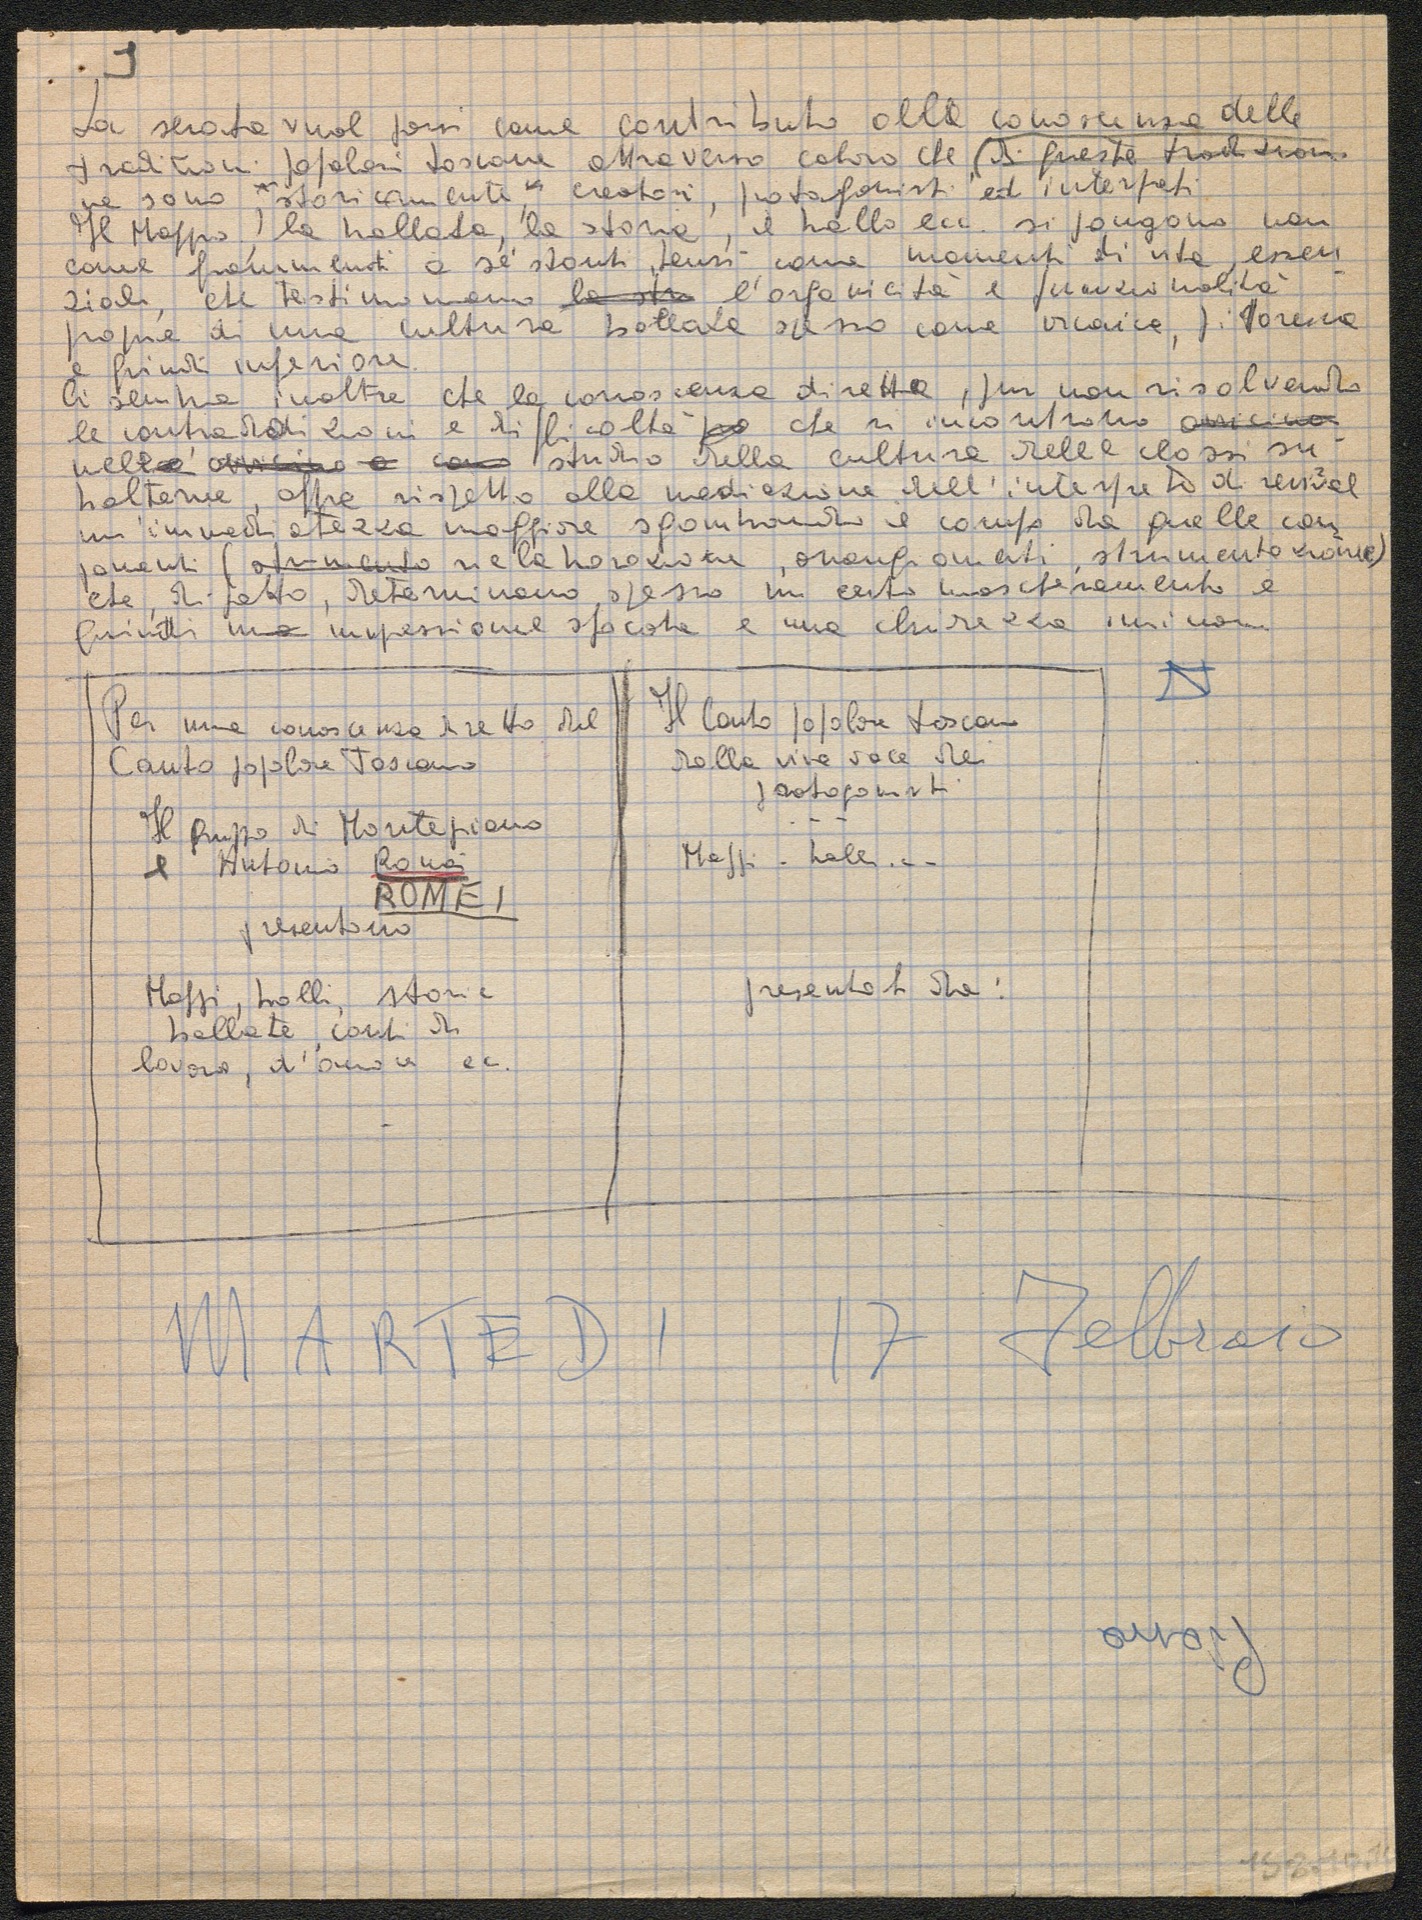 La serata vuol porsi come contributo alla conoscenza delle
tradizioni popolari toscane attraverso coloro che (di queste tradizioni
ne sono "storicamente", creatori, protagonisti ed interpreti
Il Maggio, la ballata, la storia, il ballo ecc. si pongono non
come frammenti a sé stanti, bensì come momenti di vita, essen
ziali, che testimoniano la str l'organicità e funzionalità
propria di una cultura bollata spesso come arcaica, pittoresca
e quindi inferiore.
Ci sembra inoltre che la conoscenza diretta, pur non risolvendo
le contraddizioni e difficoltà che si incontrano
nello studio della cultura delle classi su
balterne, offra rispetto alla mediazione dell'interprete di revival
un'immediatezza maggiore sgombrando il campo da quelle com
ponenti (strumento rielaborazione, arrangiamenti, strumentazione)
che, di fatto, determinano spesso un certo mascheramento e
quindi una impressione sfocata e una chiarezza minore
N
Per una conoscenza diretta del
Canto popolare Toscano
Il gruppo di Montepiano
e Antonio Romei
ROMEI
presentano
Maggi, balli, storie
ballate, canti di
lavoro, d'amore ecc.
Il Canto popolare toscano
dalla viva voce dei
protagonisti
- - -
Maggi - balli . . -
presentati da:
MARTEDI 17 Febbraio
piano